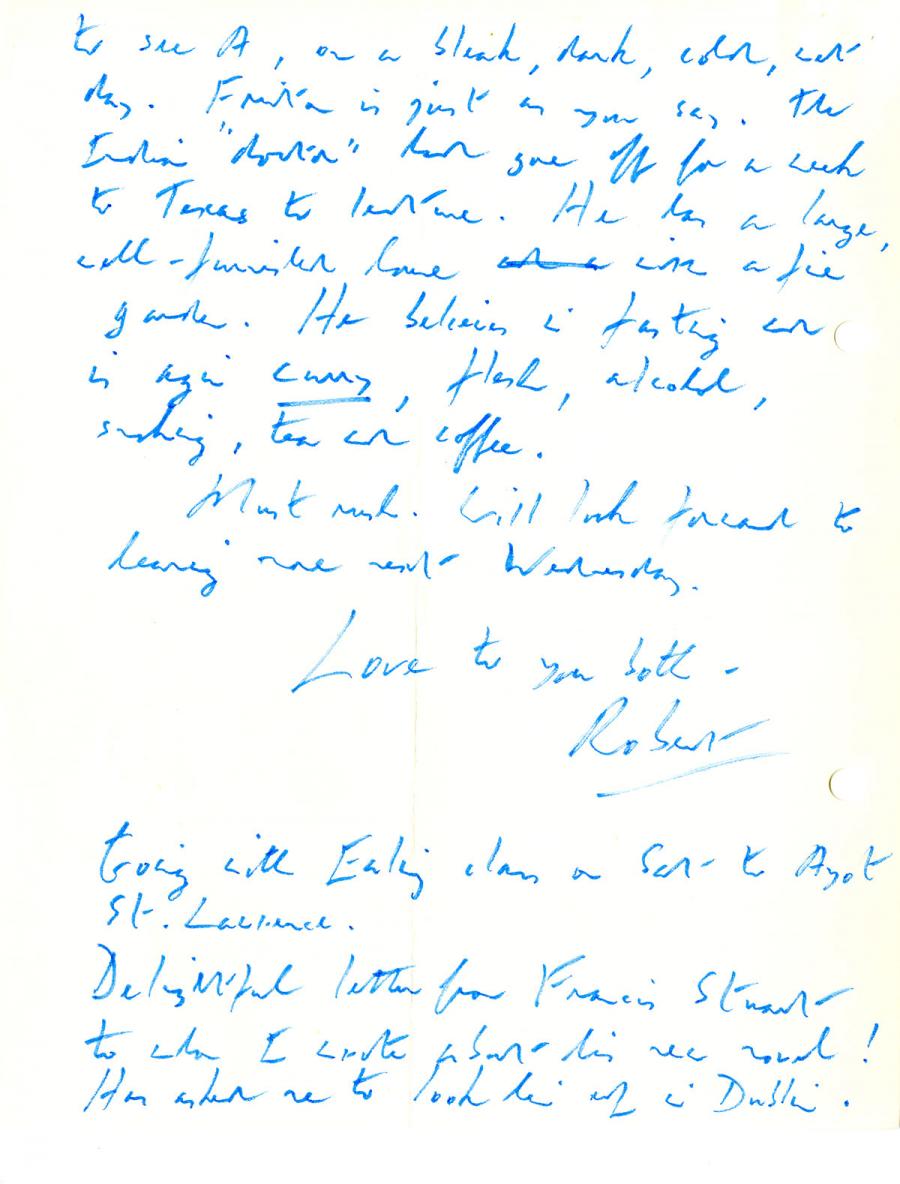 to see A, on a bleak, dark, cold, wet
day. Frinton is just as you say. The
Indian "doctor" had gone off for a week
to Texas to lecture. He has a large,
well-furnished house with a fine
garden. He believes in fasting and
is again curry, flesh, alcohol,
smoking, tea and coffee.
Must rush. Will look forward to
hearing more next Wednesday.
Love to you both -
Robert
Going with Ealing class on Sat to Ayot
St. Lawrence.
Delightful letter from Francis Stuart
to whom I wrote about his new novel!
Has asked me to look him up in Dublin.